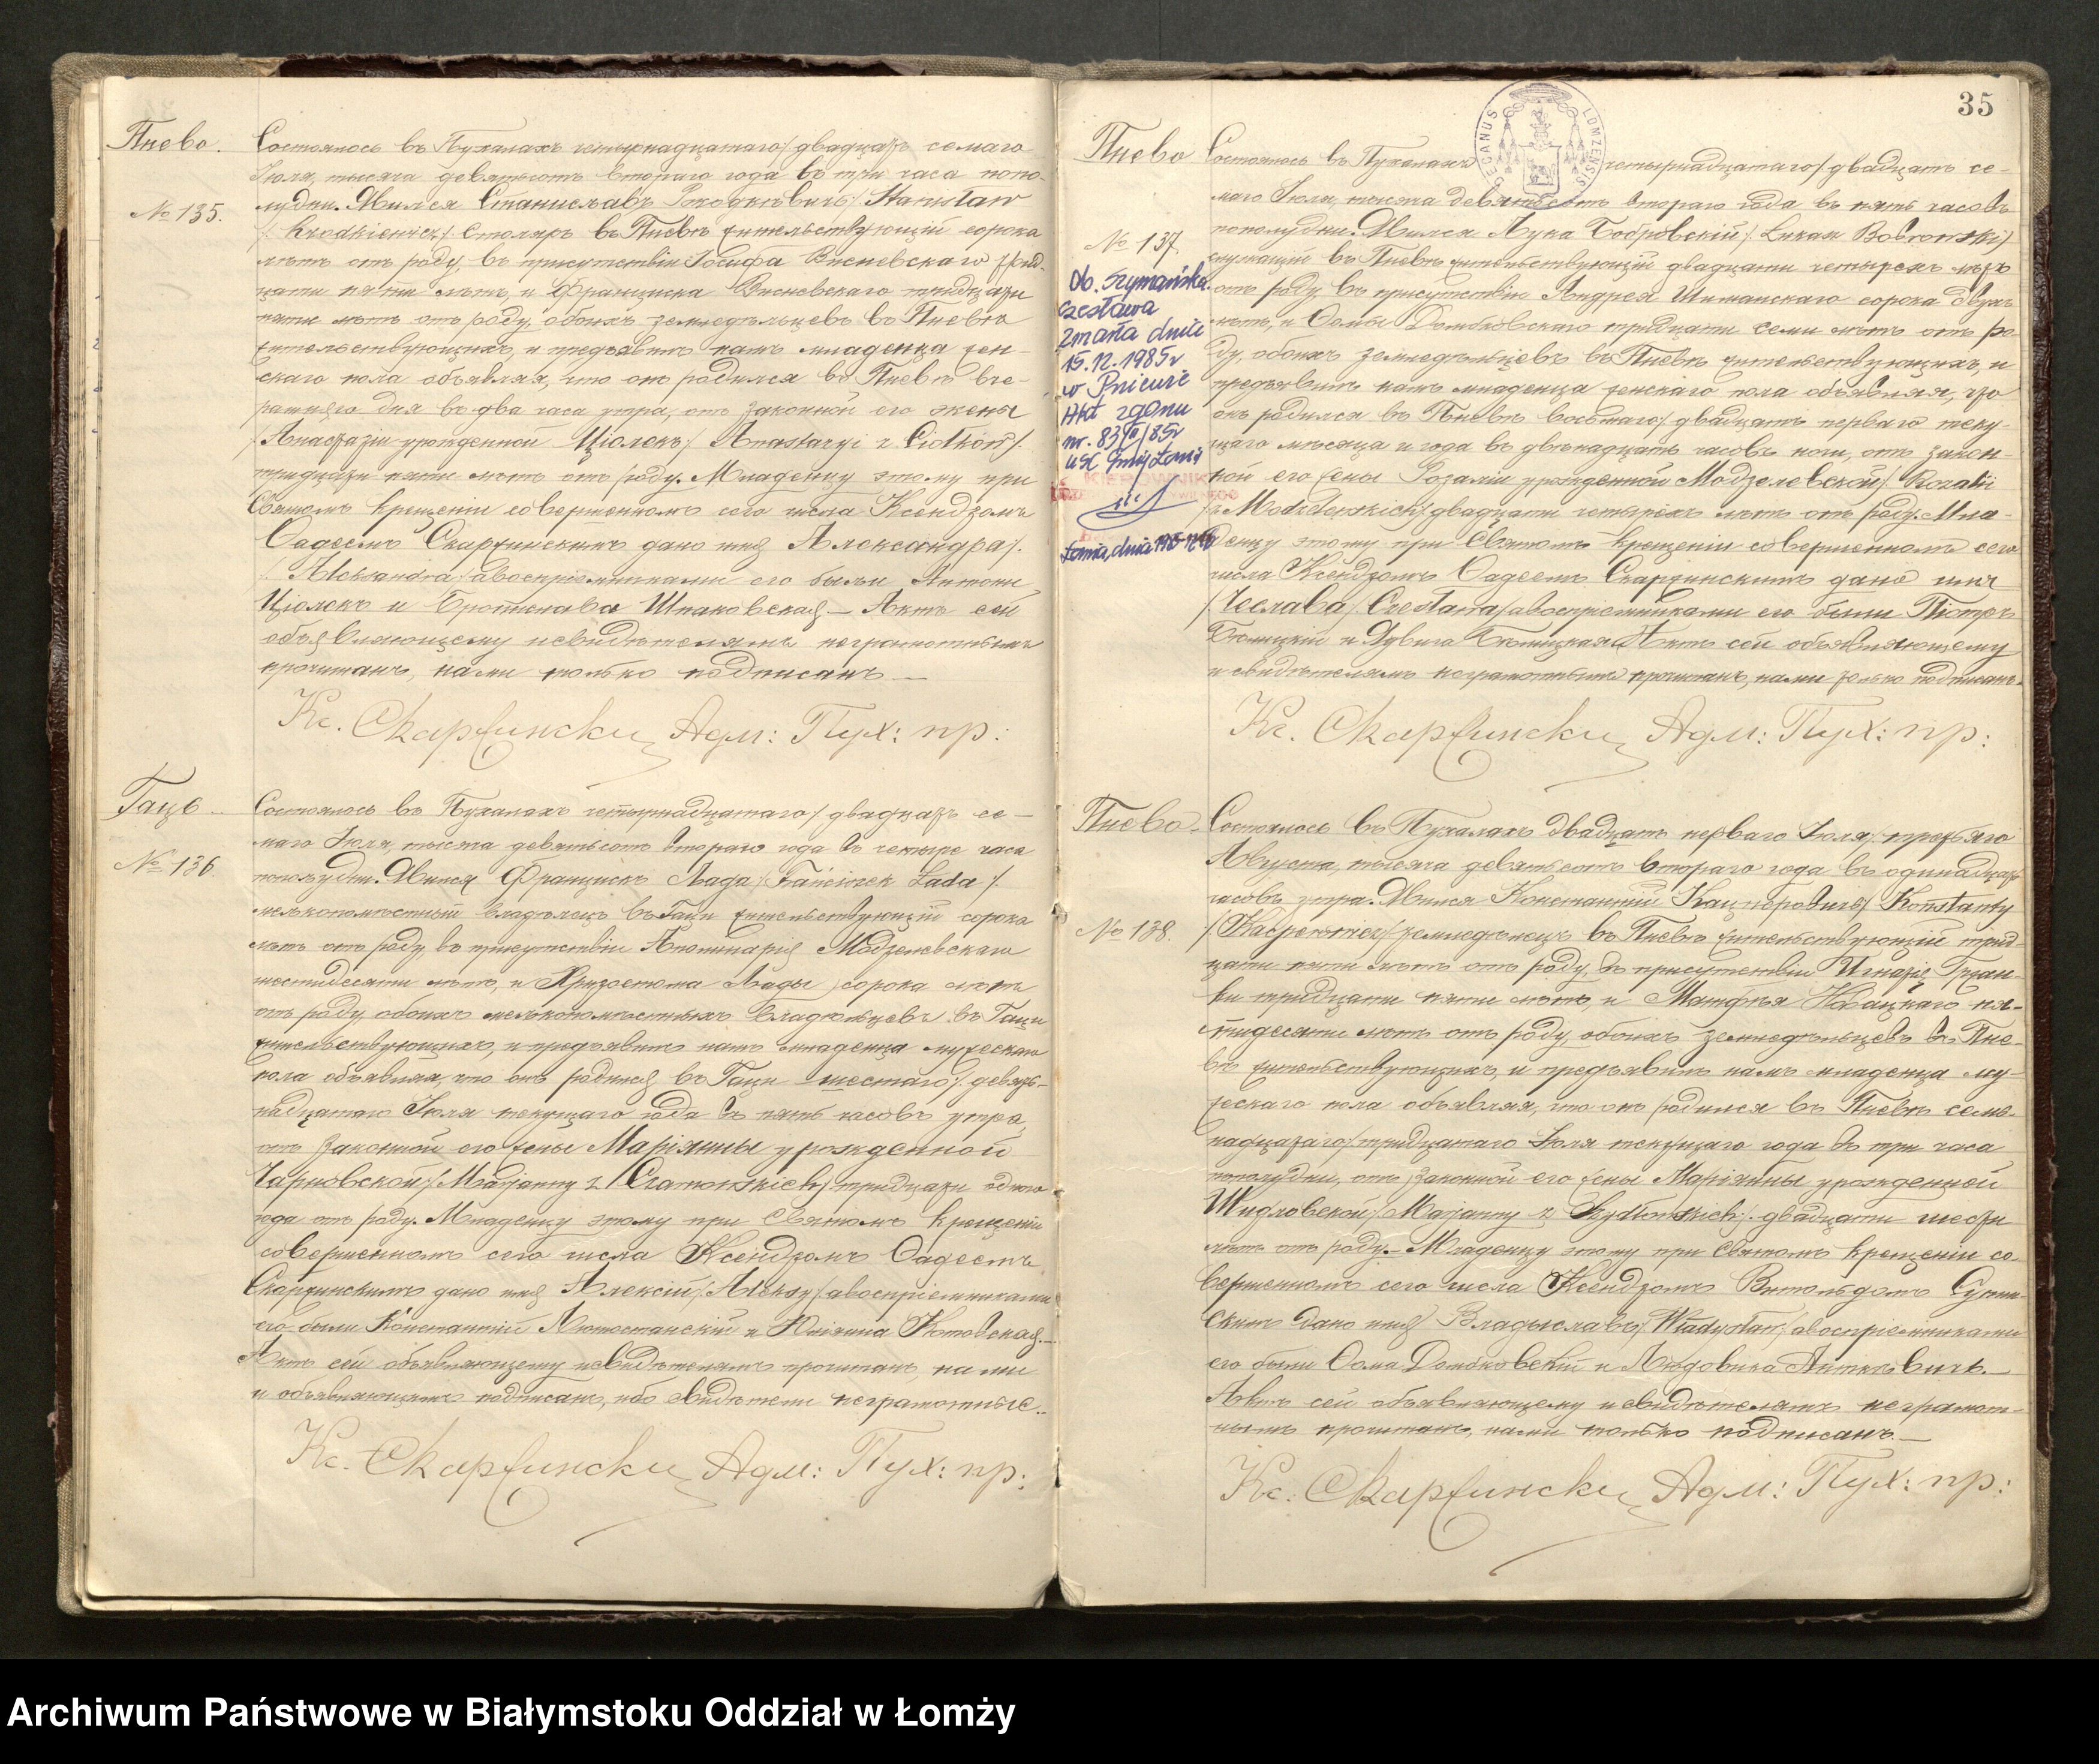 Пнево.
№ 135.
Состоялось въ Пухалахъ четырнадцатаго/ двадцать седьмаго
Іюля, тысяча девятьсотъ втораго года въ три часа попо-
лудни. Явился Станиславъ /Stanisław
столяръ въ Пневѣ жительствующій сорока
лѣтъ отъ роду, въ присутствіи Іосифа Висневскаго трид-
цати пяти лѣтъ, и Франциска Висневскаго тридцати
пяти лѣтъ отъ роду, обоихъ земледѣльцевъ въ Пневѣ
жительствующихъ, и предъявилъ намъ младенца жен-
скаго пола объявляя, что онъ родился въ Пневѣ вче-
рашняго дня въ два часа утра, отъ законной его жены
Анастазіи урожденной Ціолекъ/ Anastazyi z Ciołków/.
тридцати пяти лѣтъ отъ роду. Младенцу этому при
Святомъ крещеніи совершенномъ сего числа Ксендзомъ
Фадеемъ Скаржинскимъ дано имя Александра/.
/Aleksandra/ а воспріемниками его были Антони
Ціолекъ и Бронислава Шпаковская. – Актъ сей
объявляющему и свидѣтелямъ неграмотнымъ
прочитанъ, нами только подписанъ. —
Кс. Скаржински Адм: Пух: пр:
Гаць
№ 136.
Состоялось въ Пухалахъ четырнадцатаго/ двадцать се-
маго Іюля, тысяча девятьсотъ втораго года въ четыре часа
пополудни. Явился Францискъ Лада /Franciszek Łada/.
мелькопомѣстный владѣлецъ въ Гаци жительствующій сорока
лѣтъ отъ роду, въ присутствіи Аполинарія Модзелевскаго
шестидесяти лѣтъ, и Хризостома Лады сорока лѣтъ
отъ роду обоихъ мелькопомѣстныхъ владѣльцевъ въ Гаци
жительствующихъ, и предъявилъ намъ младенца мужескаго
пола объявляя, что онъ родился въ Гаци шестаго/. девят-
надцатаго Іюля текущаго года въ пять часовъ утра,
отъ законной его жены Маріянны урожденной
Чарновской/ Marjanny z Czarnowskich/ тридцати одного
года отъ роду. Младенцу этому при Святомъ крещеніи
совершенномъ сего числа Ксендзомъ Фадеемъ
Скаржинскимъ дано имя Алексій/. Aleksy/ а воспріемниками
его были Константій Лютостанскій и Юліянна Котовская. —
Актъ сей объявляющему и свидѣтелямъ прочитанъ, нами
и объявляющимъ подписанъ, ибо свидѣтели неграмотные.
Кс. Скаржински Адм: Пух: пр:
35
DECANUS LOMZENSIS
Пнево
№ 137
Ob. Szymańska
Czesława
zmarła dnia
15.12.1985r
w Pniewie
Akt zgonu
nr. 83/II/85r
USC Gminy Łomża
KIEROWNIK
Łomża, dnia
Состоялось въ Пухалахъ четырнадцатаго/ двадцать се-
маго Іюля, тысяча девятьсотъ втораго года въ пять часовъ
пополудни. Явился Лука Бобровскій/. Łukasz Bobrowski/
служащій въ Пневѣ жительствующій двадцати четырехъ лѣтъ
отъ роду въ присутствіи Андрея Шиманскаго сорока двухъ
лѣтъ, и Фомы Домбковскаго тридцати семи лѣтъ отъ ро-
ду, обоихъ земледѣльцевъ въ Пневѣ жительствующихъ, и
предъявилъ намъ младенца женскаго пола объявляя, что
онъ родился въ Пневѣ восьмаго/ двадцать перваго теку-
щаго мѣсяца и года въ двѣнадцать часовъ ночи, отъ закон-
ной его жены Розаліи урожденной Модзелевской/. Rozalii
z Modzelewskich/ двадцати четырехъ лѣтъ отъ роду. Мла-
денцу этому при Святомъ крещеніи совершенномъ сего
числа Ксендзомъ Фадеемъ Скаржинскимъ дано имя
/Чеслава/ Czesława/ а воспріемниками его были Піотръ
и Ядвига Актъ сей объявляющему
и свидѣтелямъ неграмотнымъ прочитанъ, нами только подписанъ.
Кс. Скаржински Адм: Пух: пр:
Пнево.
№ 138.
Состоялось въ Пухалахъ двадцать перваго Іюля/ третьяго
Августа, тысяча девятьсотъ втораго года въ одинадцать
часовъ утра. Явился Константій Кацперовичъ/ Konstanty
/Kacperowicz/ земледѣлецъ въ Пневѣ жительствующій трид-
цати пяти лѣтъ отъ роду, въ присутствіи Игнатія
тридцати пяти лѣтъ, и Матфея пя-
тидесяти лѣтъ отъ роду, обоихъ земледѣльцевъ въ Пне-
вѣ жительствующихъ, и предъявилъ намъ младенца му-
жескаго пола объявляя, что онъ родился въ Пневѣ сем-
надцатаго/ тридцатаго Іюля текущаго года въ три часа
пополудни, отъ законной его жены Маріянны урожденной
Шидловской/ Marjanny z Szydłowskich/. двадцати шести
лѣтъ отъ роду. Младенцу этому при Святомъ крещеніи со-
вершенномъ сего числа Ксендзомъ Витольдомъ
дано имя Владыславъ/. Władysław/ а воспріемниками
его были Фома Домбковскій и Людовика —
Актъ сей объявляющему и свидѣтелямъ неграмот-
нымъ прочитанъ, нами только подписанъ. —
Кс. Скаржински Адм: Пух: пр:
Archiwum Państwowe w Białymstoku Oddział w Łomży